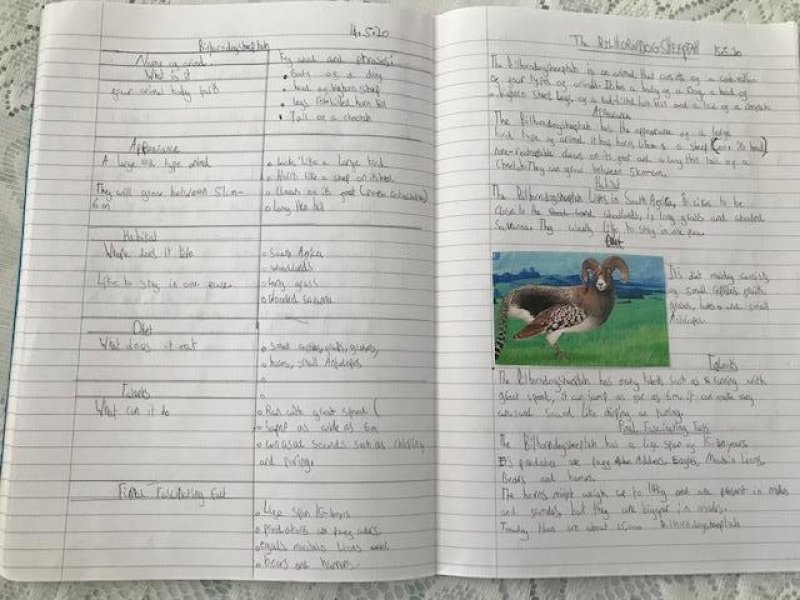 14.5.20
Bilhorndogsheeptah
Name of animal
What is it
your animal body parts
Key words and phrases:
Body of a dog
head of bighorn sheep
legs horn bill
Tail of a cheetah
Appearance
A large bird type animal
They will grow between 51cm-
6m
Looks like a large bird
Horns like a sheep on its head
Claws on its feet
Long thin tail
Habitat
Where does it live
Like to stay in one place.
South Africa
woodlands
long grass
wooded savanna
Diet
What does it eat
Small reptiles, goats, grasses,
hares, small Antelopes
Talents
What can it do
Run with great speed (
Jump as wide as 6m
unusual sounds such as chirping
and purring.
Final Fascinating fact
Life span 16-
predators are
eagles mountain Lions
bears and humans.
The BILHORNDOGSHEEPTAH 15.5.20
The Bilhorndogsheeptah is an animal that consists of a
of four types of animals. It has a body of a Dog, a head of
a bighorn sheep, Legs of a bill and a tail of a cheetah
Appearance
The Bilhorndogsheeptah has the appearance of a large
bird type of animal it has horns like a sheep (on its head)
non-retractable claws on its feet and a long thin tail of a
Cheetah. They can grow between 51cm-6m.
Habitat
The Bilhorndogsheeptah Lives in South Africa, it likes to be
close to the woodlands, in long grass and wooded
Savanna. They usually like to stay in one place.
Diet
It's diet mainly consists
of small reptiles
goats, hares and small
Antelopes.
Talents
The Bilhorndogsheeptah has many talents such as running with
great speed, it can jump as far as 6m it can make very
unusual sounds like chirping or purring.
Final Fascinating Facts
The Bilhorndogsheeptah has a life span of years
It's predators are Eagles, Mountain Lions,
Bears and humans.
The horns might weigh up to 14kg and are present in males
and females but they are bigger in males.
Today there are about 15,000 Bilhorndogsheeptah